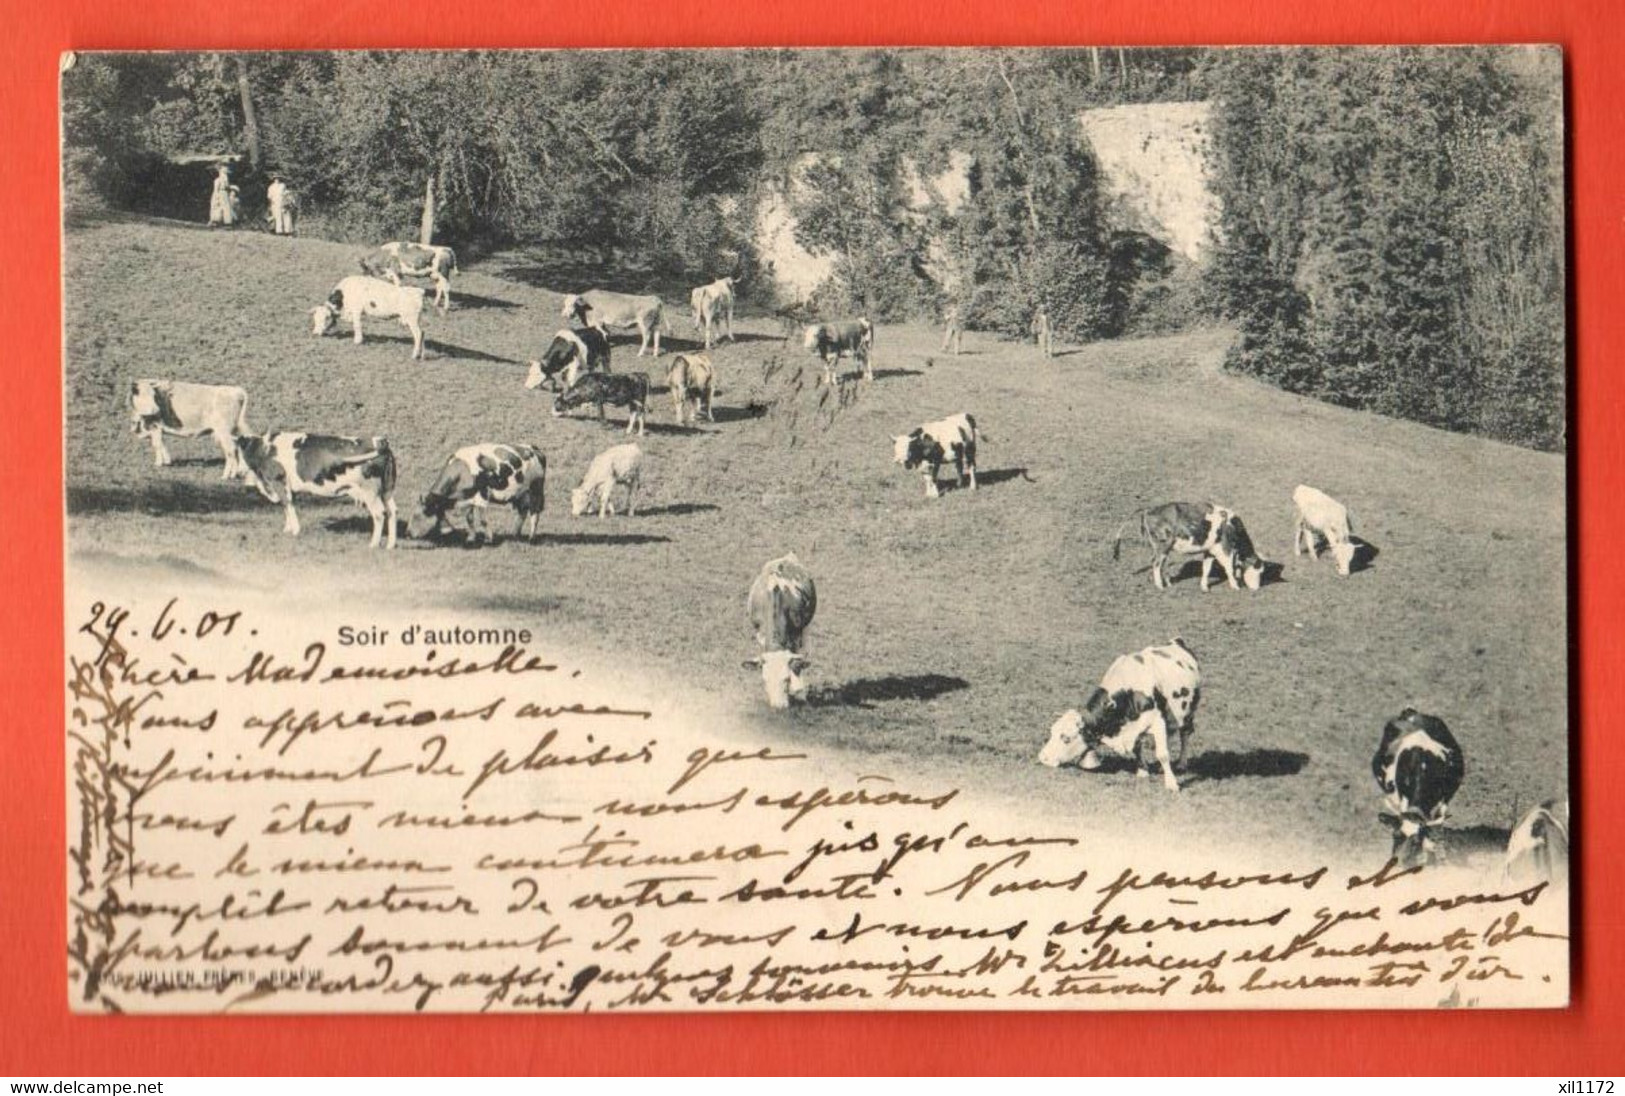 29.6.01.
Soir d'automne
Chère Mademoiselle.
Nous apprenons avec
infiniment de plaisir que
vous êtes mieux nous espérons
que le mieux continuera jusqu'au
complèt retour de votre santé. Nous pensons et
parlons souvent de vous et nous espérons que vous
garder aussi quelques souvenirs. Mr Lilliacus est enchanté de
Paris, Mr Schlösser trouve le travail du bureau très dûr.
JULLIEN FRÈRES, GENÈVE
www.delcampe.net
xil1172